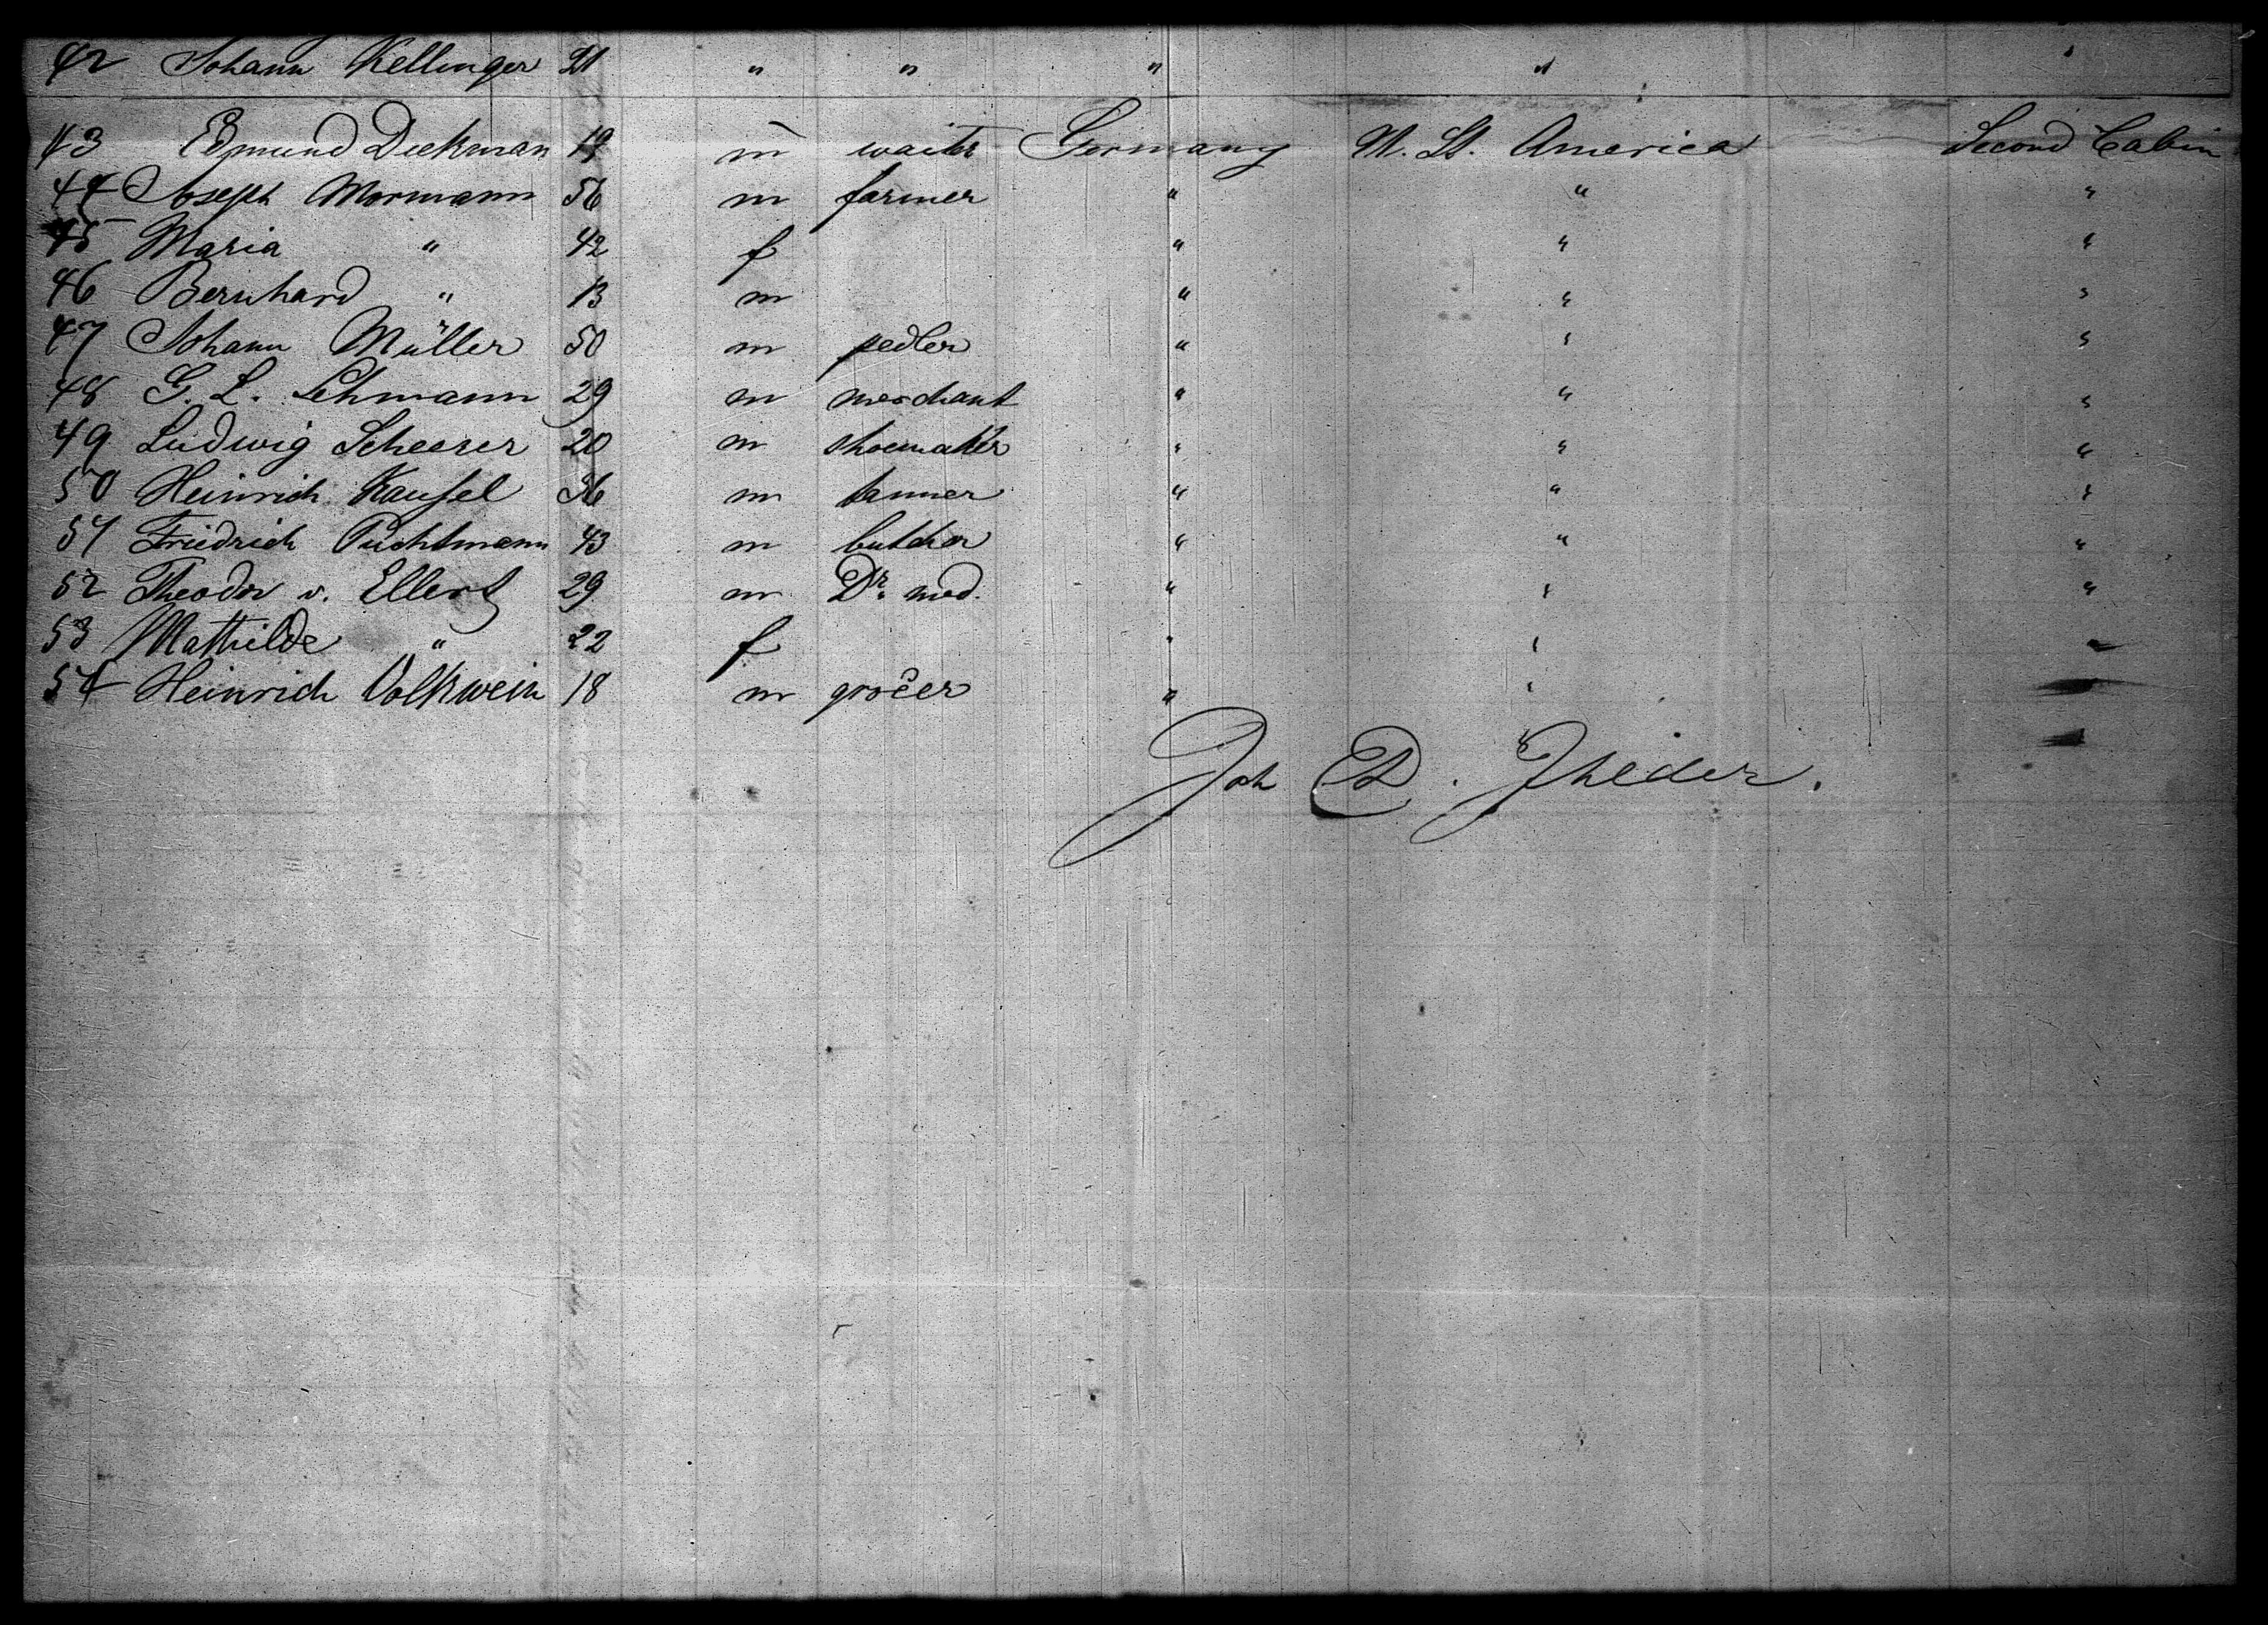 42 Johann Kellinger 21 " " " " "
43 Edmund Dickman 19 m waiter Germany U. St. America Second Cabin
44 Joseph Mormann 56 m farmer " " "
45 Maria " 42 f " " "
46 Bernhard " 13 m " " "
47 Johann Müller 50 m pedler " " "
48 G. L. Lehmann 29 m merchant " " "
49 Ludwig Scheerer 20 m shoemaker " " "
50 Heinrich Kaufel 36 m tanner " " "
51 Friedrich Puchtmann 43 m butcher " " "
52 Theodor v. Ellert 29 m Dr. med. " " "
53 Mathilde " 22 f " "
54 Heinrich Volkwein 18 m grocer " "
Joh Ed.